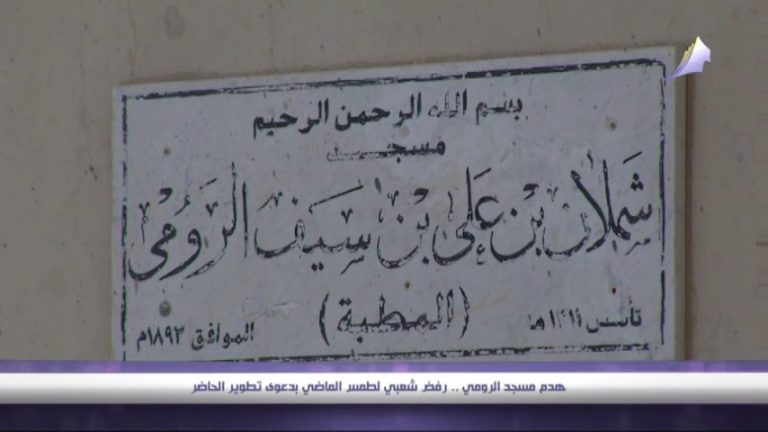 بسم الله الرحمن الرحيم
مسجد
شملان بن علي بن سيف الرومي
(المطبة)
تأسس ١٣١١هـ الموافق ١٨٩٣م
هدم مسجد الرومي .. رفض شعبي لطمس الماضي بدعوى تطوير الحاضر